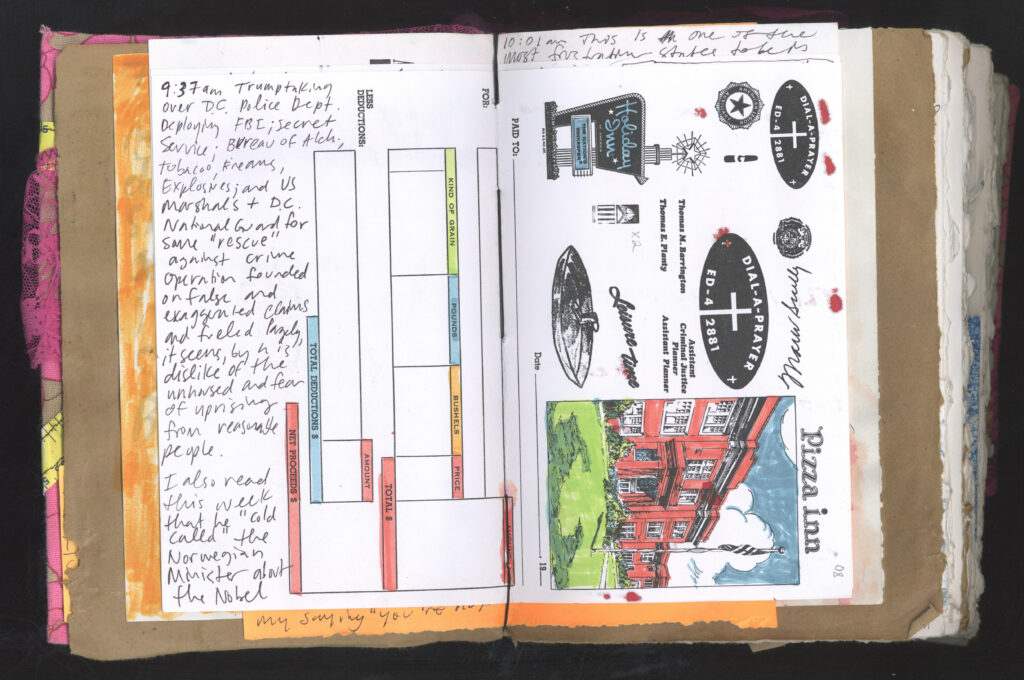 9:37 am Trump taking
over D.C. Police Dept.
Deploying FBI; Secret
Service; Bureau of Alch,
tobacco, Firearms,
Explosives; and US
Marshals + D.C.
National Guard for
some "rescue"
against crime
Operation founded
on false and
exaggerated claims
and fueled largely,
it seems, by his
dislike of the
unhoused and fear
of uprising
from reasonable
people.
I also read
this week
that he "cold
called" the
Norwegian
Minister about
the Nobel
LESS
DEDUCTIONS:
FOR:
KIND OF GRAIN
POUNDS
BUSHELS
PRICE
AMOUNT
TOTAL $
TOTAL DEDUCTIONS $
NET PROCEEDS $
my saying "you're
10:01 am This is one of the
most frustrating states to be in
PAID TO:
Date
19
Holiday
Inn
DIAL-A-PRAYER
ED-4 2881
X2
Thomas M. Barrington
Thomas E. Planty
Assistant
Criminal Justice
Planner
Assistant Planner
DIAL-A-PRAYER
ED-4 2881
Pizza inn
80